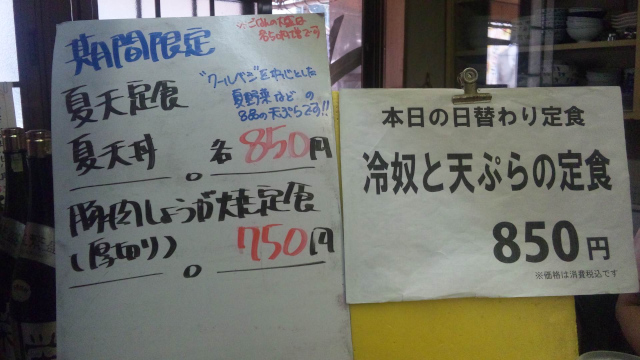 期間限定
ごはんの大盛は
各50円増です
夏天定食
"クールベジ"を中心とした
夏野菜などの
8品の天ぷらです!!
夏天丼 各850円
豚肉しょうが焼定食
(厚切り) 750円
本日の日替わり定食
冷奴と天ぷらの定食
850円
※価格は消費税込です